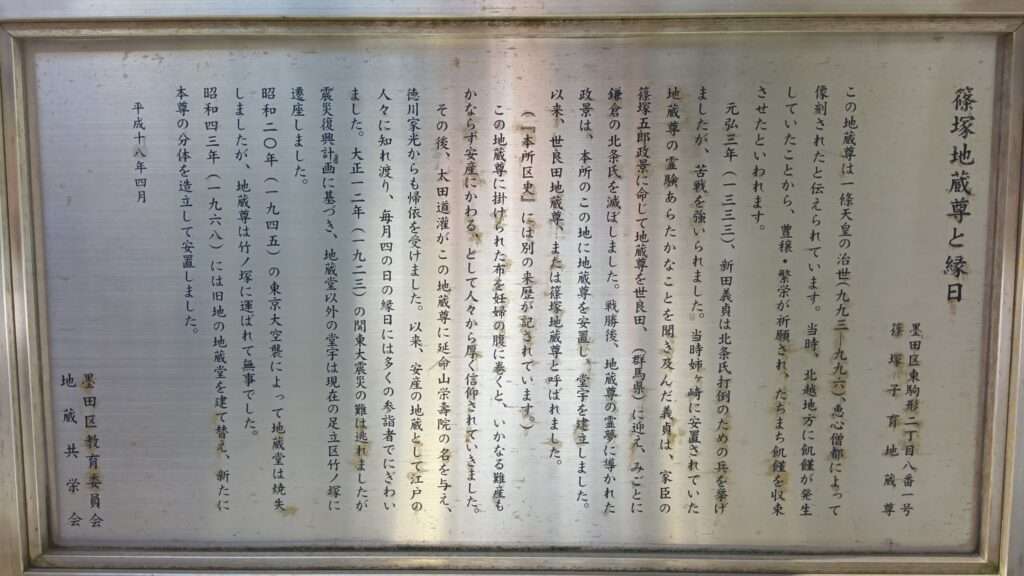 篠塚地蔵尊と縁日
墨田区東駒形二丁目八番一号
篠塚子育地蔵尊
この地蔵尊は一條天皇の治世(九九三―九九六)、恵心僧都によって
像刻されたと伝えられています。当時、北越地方に飢饉が発生
していたことから、豊穣・繁栄が祈願され、たちまち飢饉を収束
させたといわれます。
元弘三年(一三三三)、新田義貞は北条氏打倒のための兵を挙げ
ましたが、苦戦を強いられました。当時姉ヶ崎に安置されていた
地蔵尊の霊験あらたかなことを聞き及んだ義貞は、家臣の
篠塚五郎政景に命して地蔵尊を世良田、(群馬県)に迎え、みごとに
鎌倉の北条氏を滅ぼしました。戦勝後、地蔵尊の霊夢に導かれた
政景は、本所のこの地に地蔵尊を安置し、堂宇を建立しました。
以来、世良田地蔵尊、または篠塚地蔵尊と呼ばれました。
(『本所区史』には別の来歴が記されています。)
この地蔵尊に掛けられた布を妊婦の腹に巻くと、いかなる難産も
かならず安産にかわる、として人々から厚く信仰されていきました。
その後、太田道灌がこの地蔵尊に延命山栄壽院の名を与え、
徳川家光からも帰依を受けました。以来、安産の地蔵として江戸の
人々に知れ渡り、毎月四の日の縁日には多くの参詣者でにぎわい
ました。大正一二年(一九二三)の関東大震災の難は逃れましたが
震災復興計画に基づき、地蔵堂以外の堂宇は現在の足立区竹ノ塚に
遷座しました。
昭和二〇年(一九四五)の東京大空襲によって地蔵堂は焼失
しましたが、地蔵尊は竹ノ塚に運ばれて無事でした。
昭和四三年(一九六八)には旧地の地蔵堂を建て替え、新たに
本尊の分体を造立して安置しました。
平成十八年四月
墨田区教育委員会
地蔵共栄会